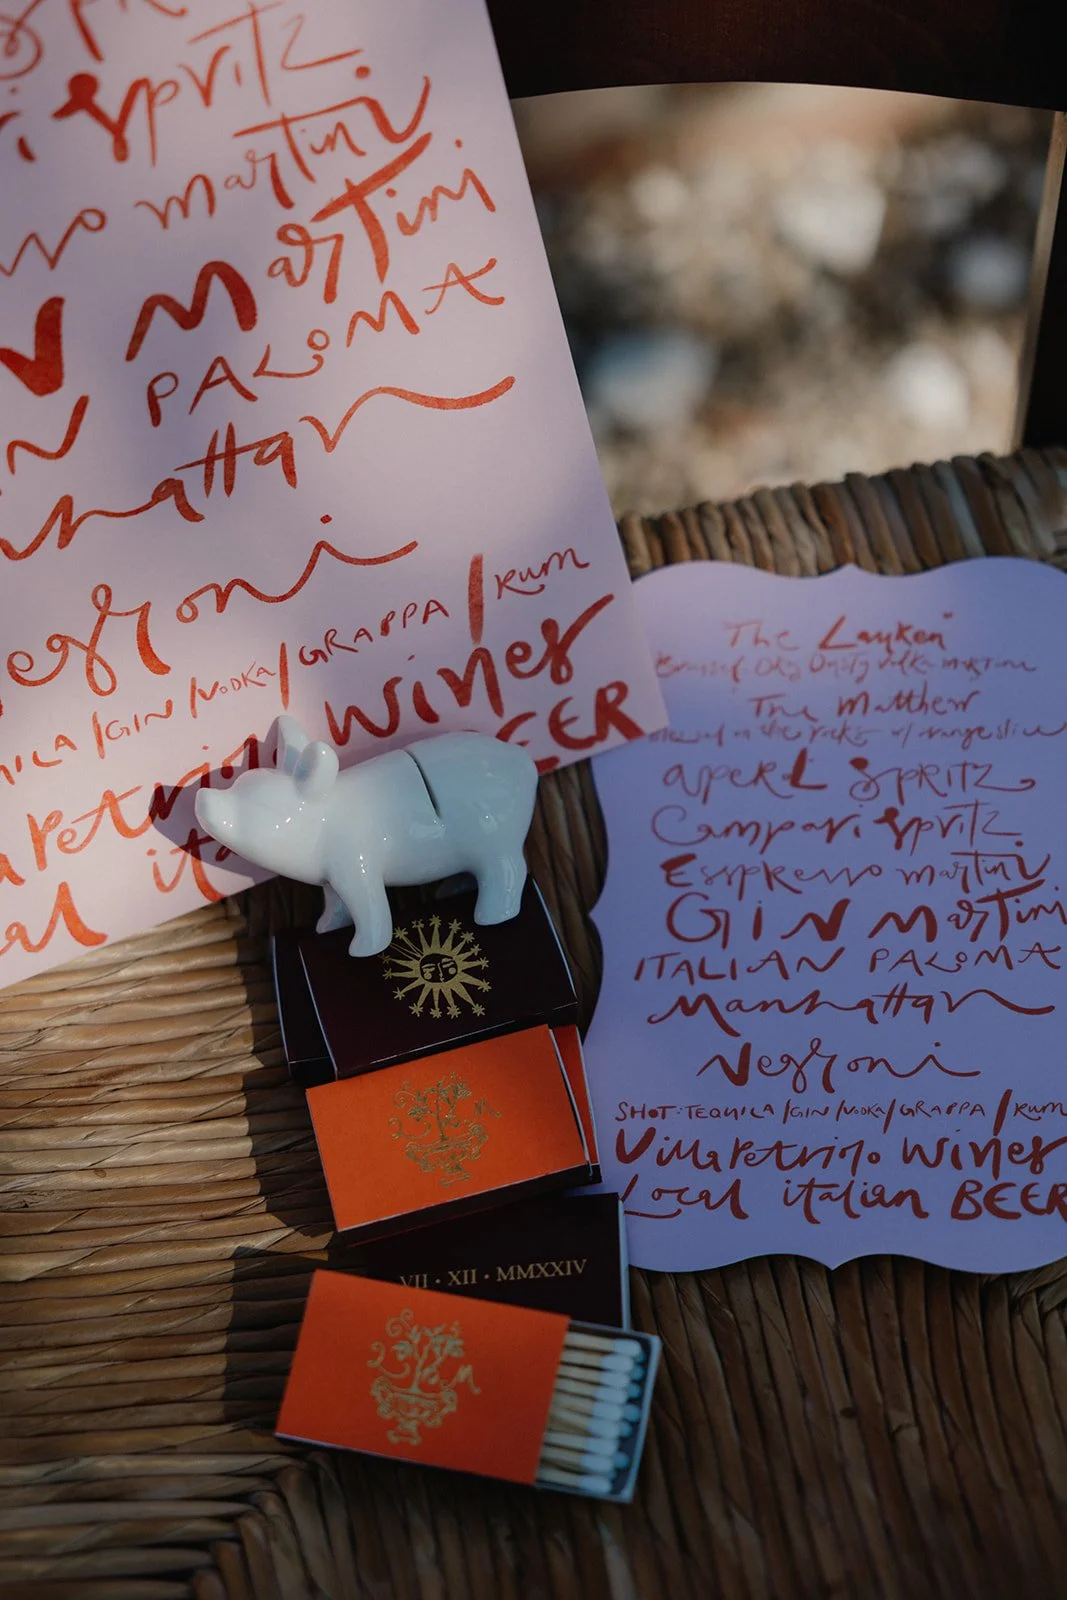 spritz
martini
MarTini
N PALOMA
nhattan
egroni
UILA / GIN / VODKA / GRAPPA / RUM
a Petrino Wines
al ita BEER
"The Layken"
The Matthew
on the rocks w/ orange slice
aperL SPRITZ
Campari spritz
Espresso martini
GIN MarTini
ITALIAN PALOMA
Manhattan
Negroni
SHOT: TEQUILA / GIN / VODKA / GRAPPA / RUM
Villa Petriolo Wines
Local italian BEER
VII · XII · MMXXIV